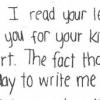 I read your le
you for your ki
rt. The fact tha
day to write me